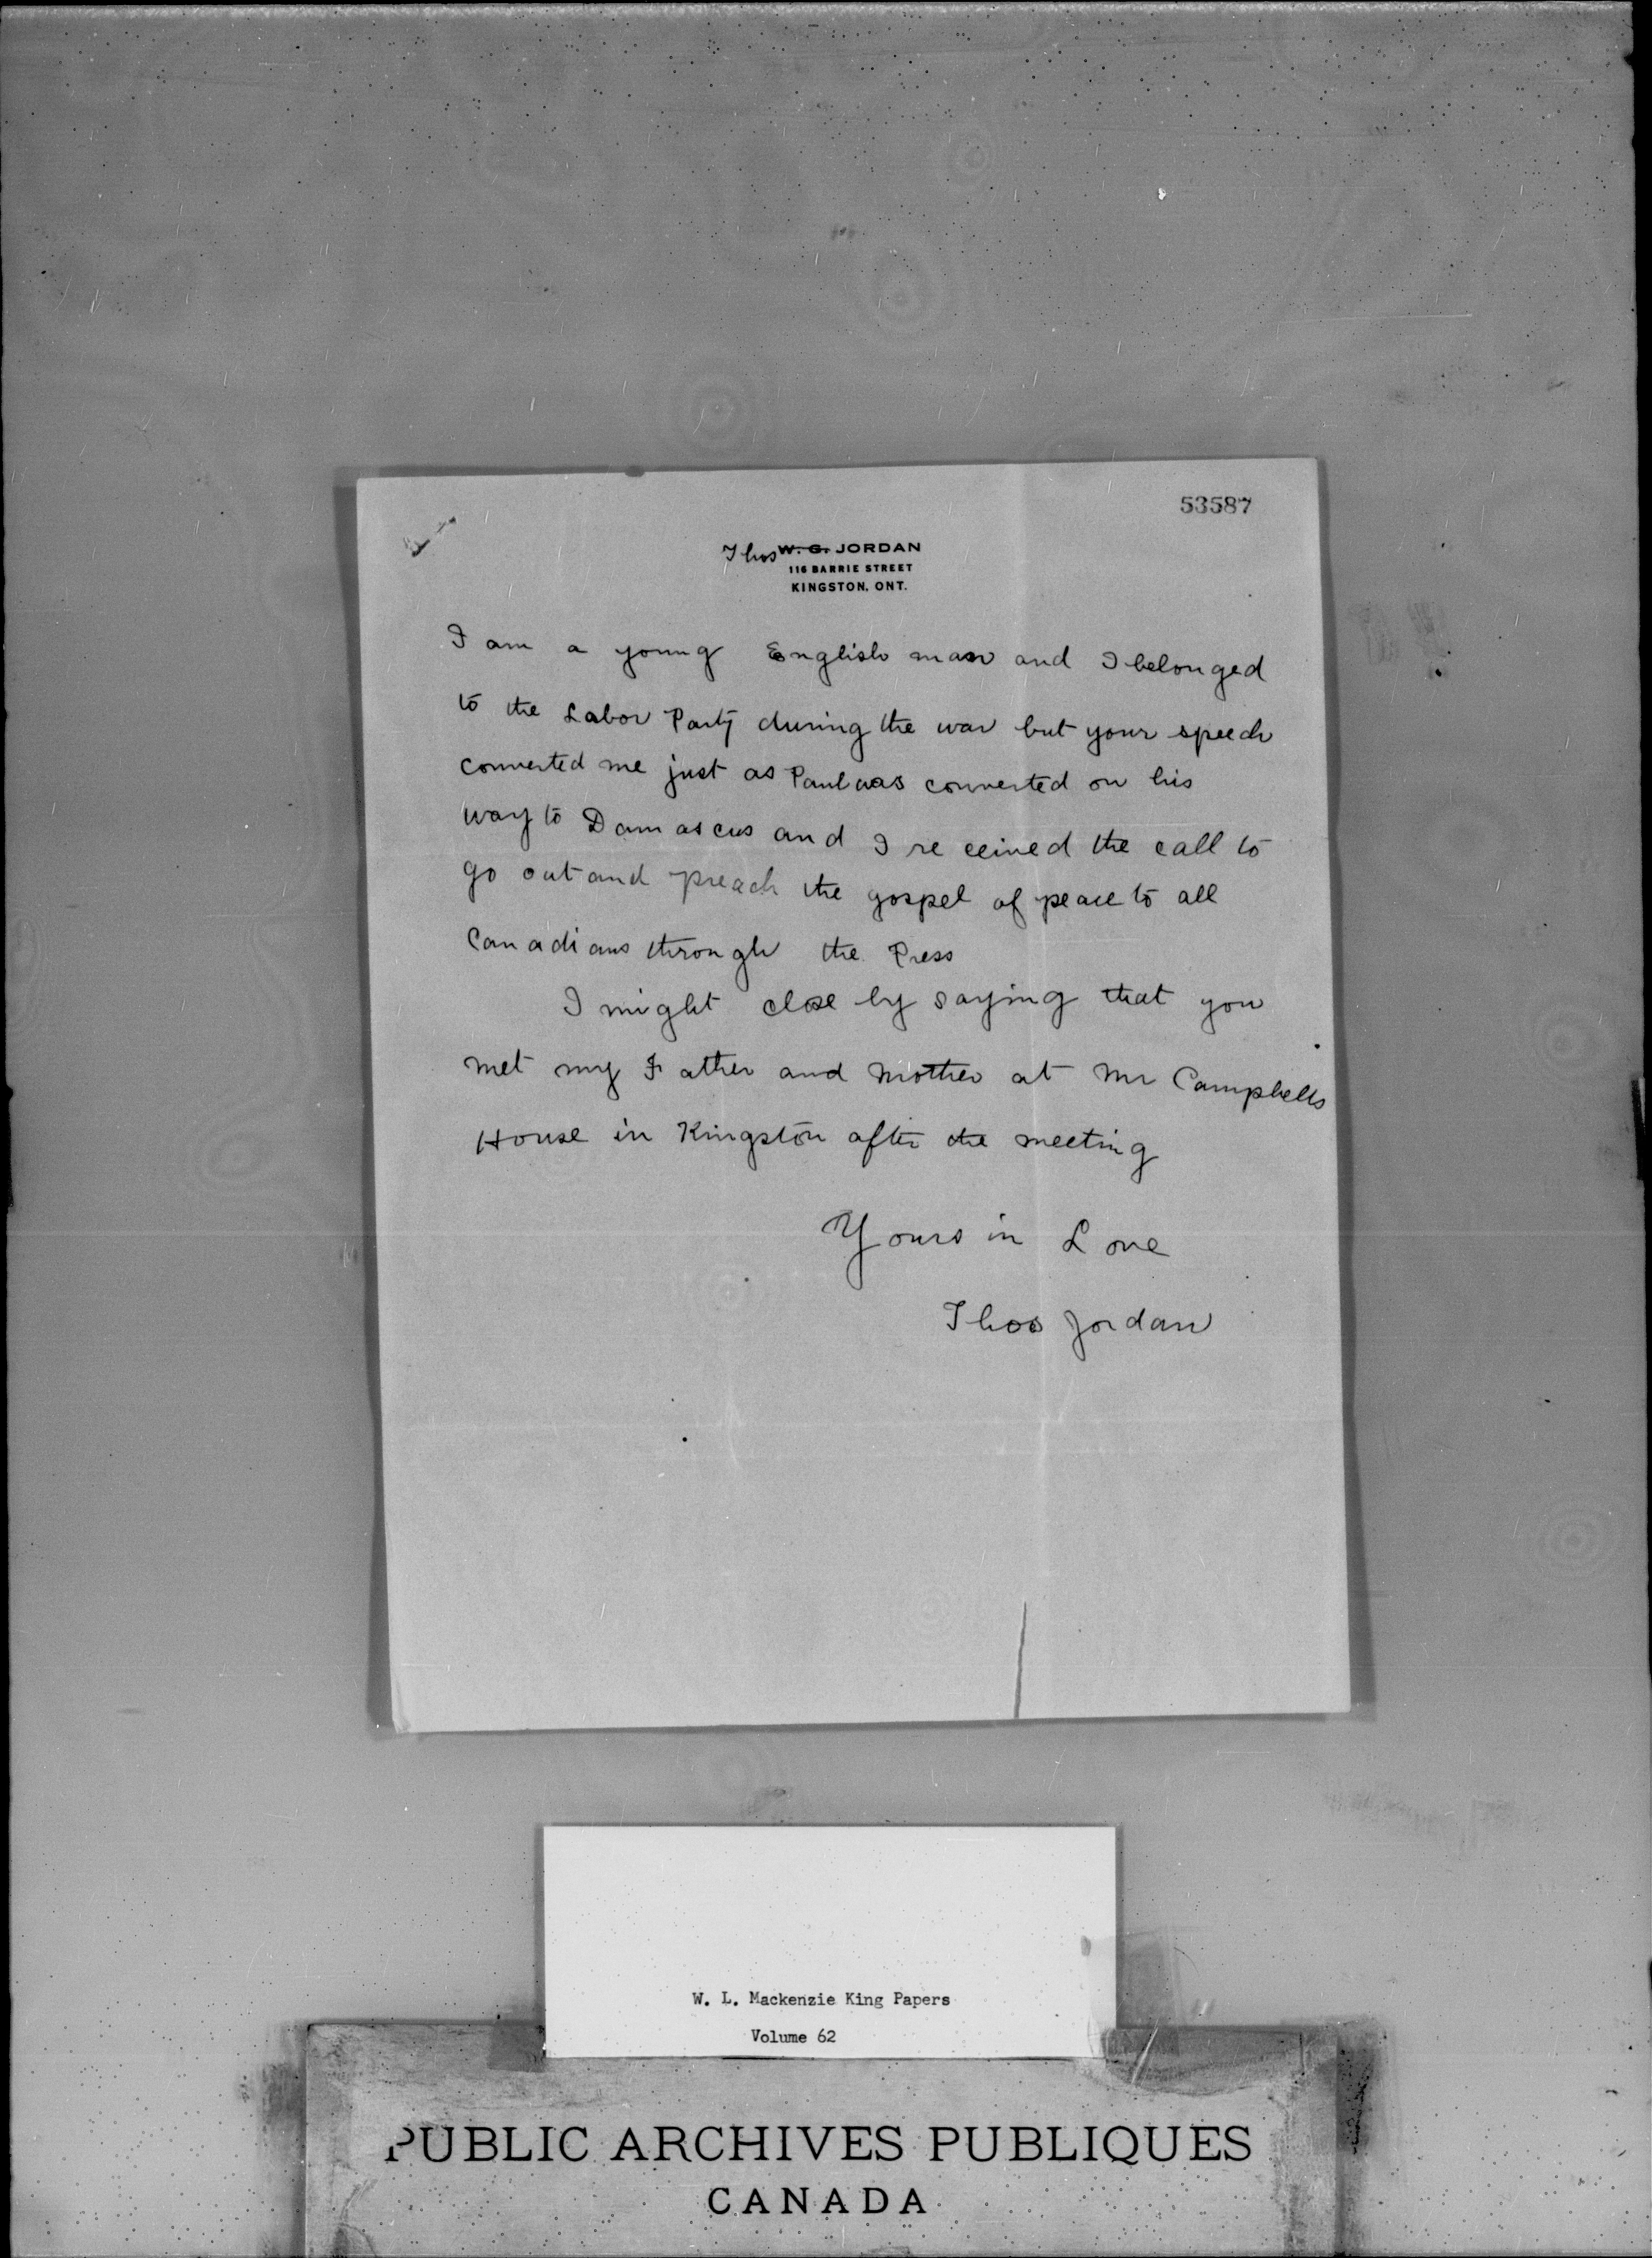 53587
Thos W. G. JORDAN
116 BARRIE STREET
KINGSTON, ONT.
I am a young English man and I belonged
to the Labor Party during the war but your speech
converted me just as Paul was converted on his
way to Damascus and I received the call to
go out and preach the gospel of peace to all
Canadians through the Press
I might close by saying that you
met my Father and Mother at Mr Campbells
House in Kingston after the meeting
Yours in Love
Thos Jordan
W. L. Mackenzie King Papers
Volume 62
PUBLIC ARCHIVES PUBLIQUES
CANADA